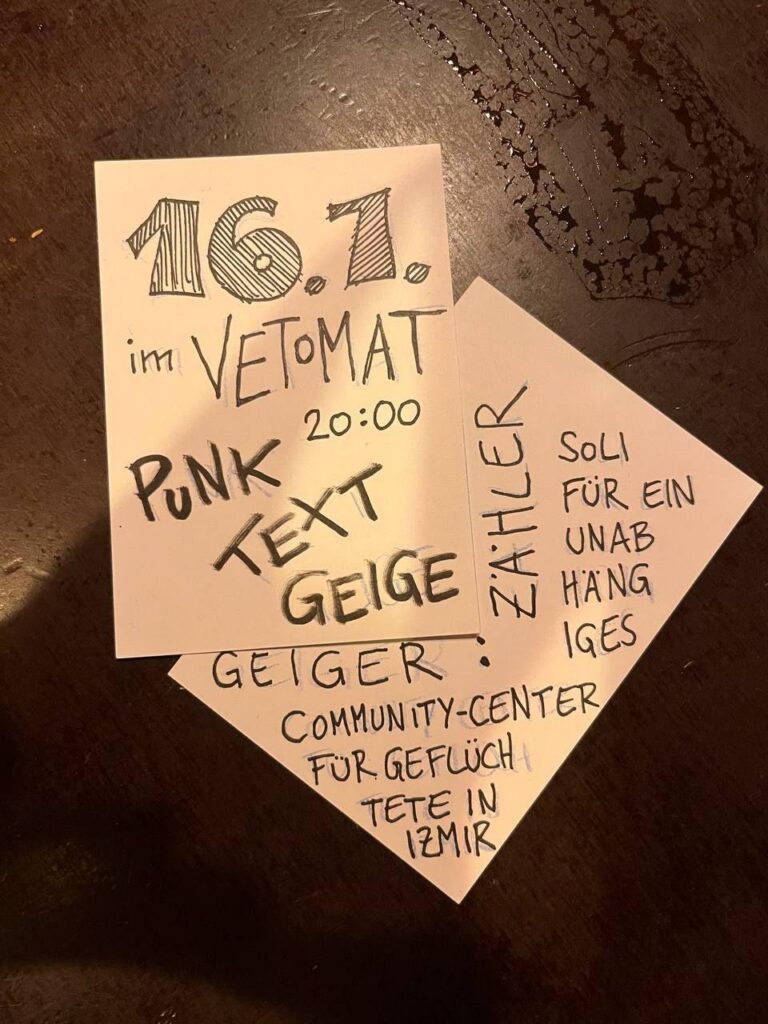 16.1.
im VETOMAT
20:00
PUNK
TEXT
GEIGE
GEIGER:
ZÄHLER
SOLI
FÜR EIN
UNAB
HÄNG
IGES
COMMUNITY-CENTER
FÜR GEFLÜCH
TETE IN
IZMIR